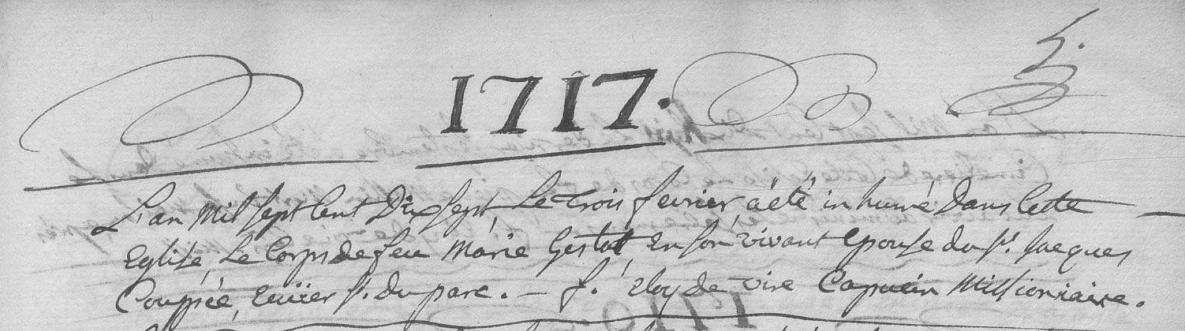 1717.
L'an Mil sept Cent Dix sept Le trois fevrier à été inhumé Dans Cette
Eglise Le Corps de feu Marie Gestat En son vivant Epouse du Sr. Jacques
Couppée, Ecuier Sr. du parc. — f. Eloy de vire Capucin Missionaire.